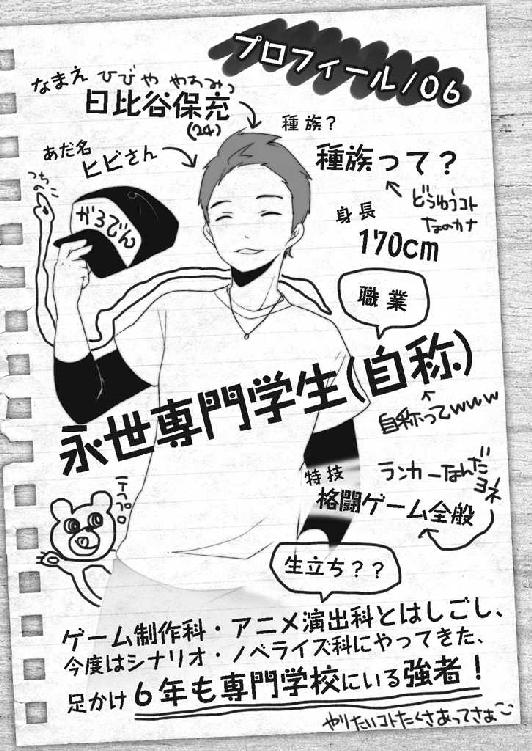 プロフィール/06
なまえ ひびや やすみつ
日比谷保充
(24)
あだ名
ヒビさん
種族?
種族って?
どうゆうコト
なのカナ
身長
170cm
がるでん
職業
永世専門学生(自称)
自称ってwww
特技
格闘ゲーム全般
ランカーなんだ
ヨネ
生立ち??
ゲーム制作科・アニメ演出科とはしごし、
今度はシナリオ・ノベライズ科にやってきた、
足かけ6年も専門学校にいる強者!
やりたいコトたくさあってさぁ